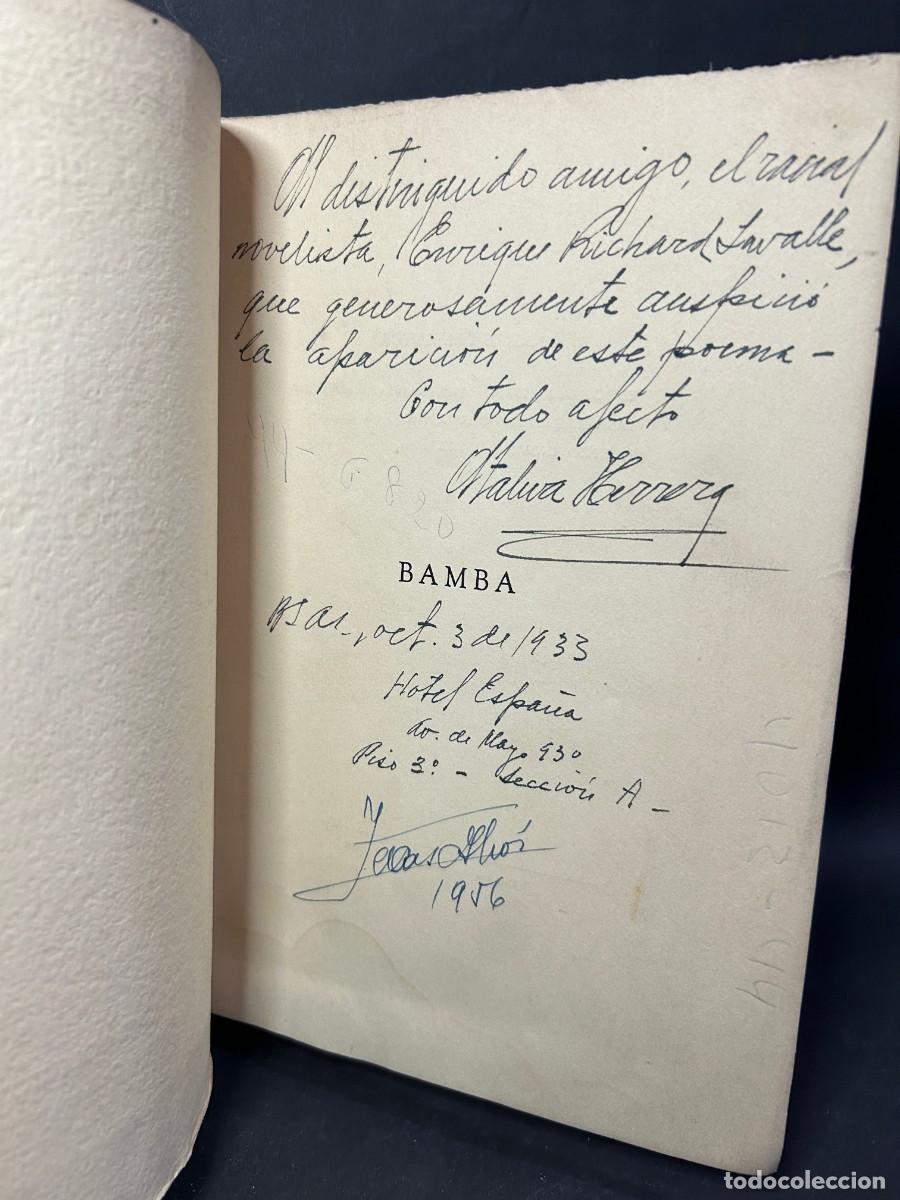 Al distinguido amigo, el racial
novelista, Enrique Richard Lavalle,
que generosamente auspició
la aparición de este poema –
Con todo afecto
Ataliva Herrera
44-
820
BAMBA
Bs As., oct. 3 de 1933
Hotel España
Av. de Mayo 930
Piso 3º – Sección A –
1956
4012-44
todocoleccion